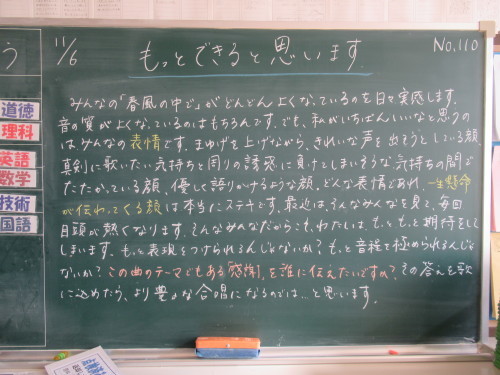 11/6
もっとできると思います
No.110
みんなの「春風の中で」がどんどんよくなっているのを日々実感します。
音の質がよくなっているのはもちろんです。でも、私がいちばんいいなと思うの
はみんなの表情です。まゆげを上げながら、きれいな声を出そうとしている顔、
真剣に歌いたい気持ちと周りの誘惑に負けてしまいそうな気持ちの間で
たたかっている顔、優しく語りかけるような顔。どんな表情であれ、一生懸命
が伝わってくる顔は本当にステキです。最近は、そんなみんなを見て、毎回
目頭が熱くなります。そんなみんなだからこそ、わたしは、もっともっと期待をして
しまいます。もっと表現をつけられるんじゃないか?もっと音程を極められるんじゃ
ないか?この曲のテーマでもある「感謝」を誰に伝えたいですか?その答えを歌
に込めたら、より豊かな合唱になるのでは…と思います。
う
道徳
理科
英語
数学
技術
国語